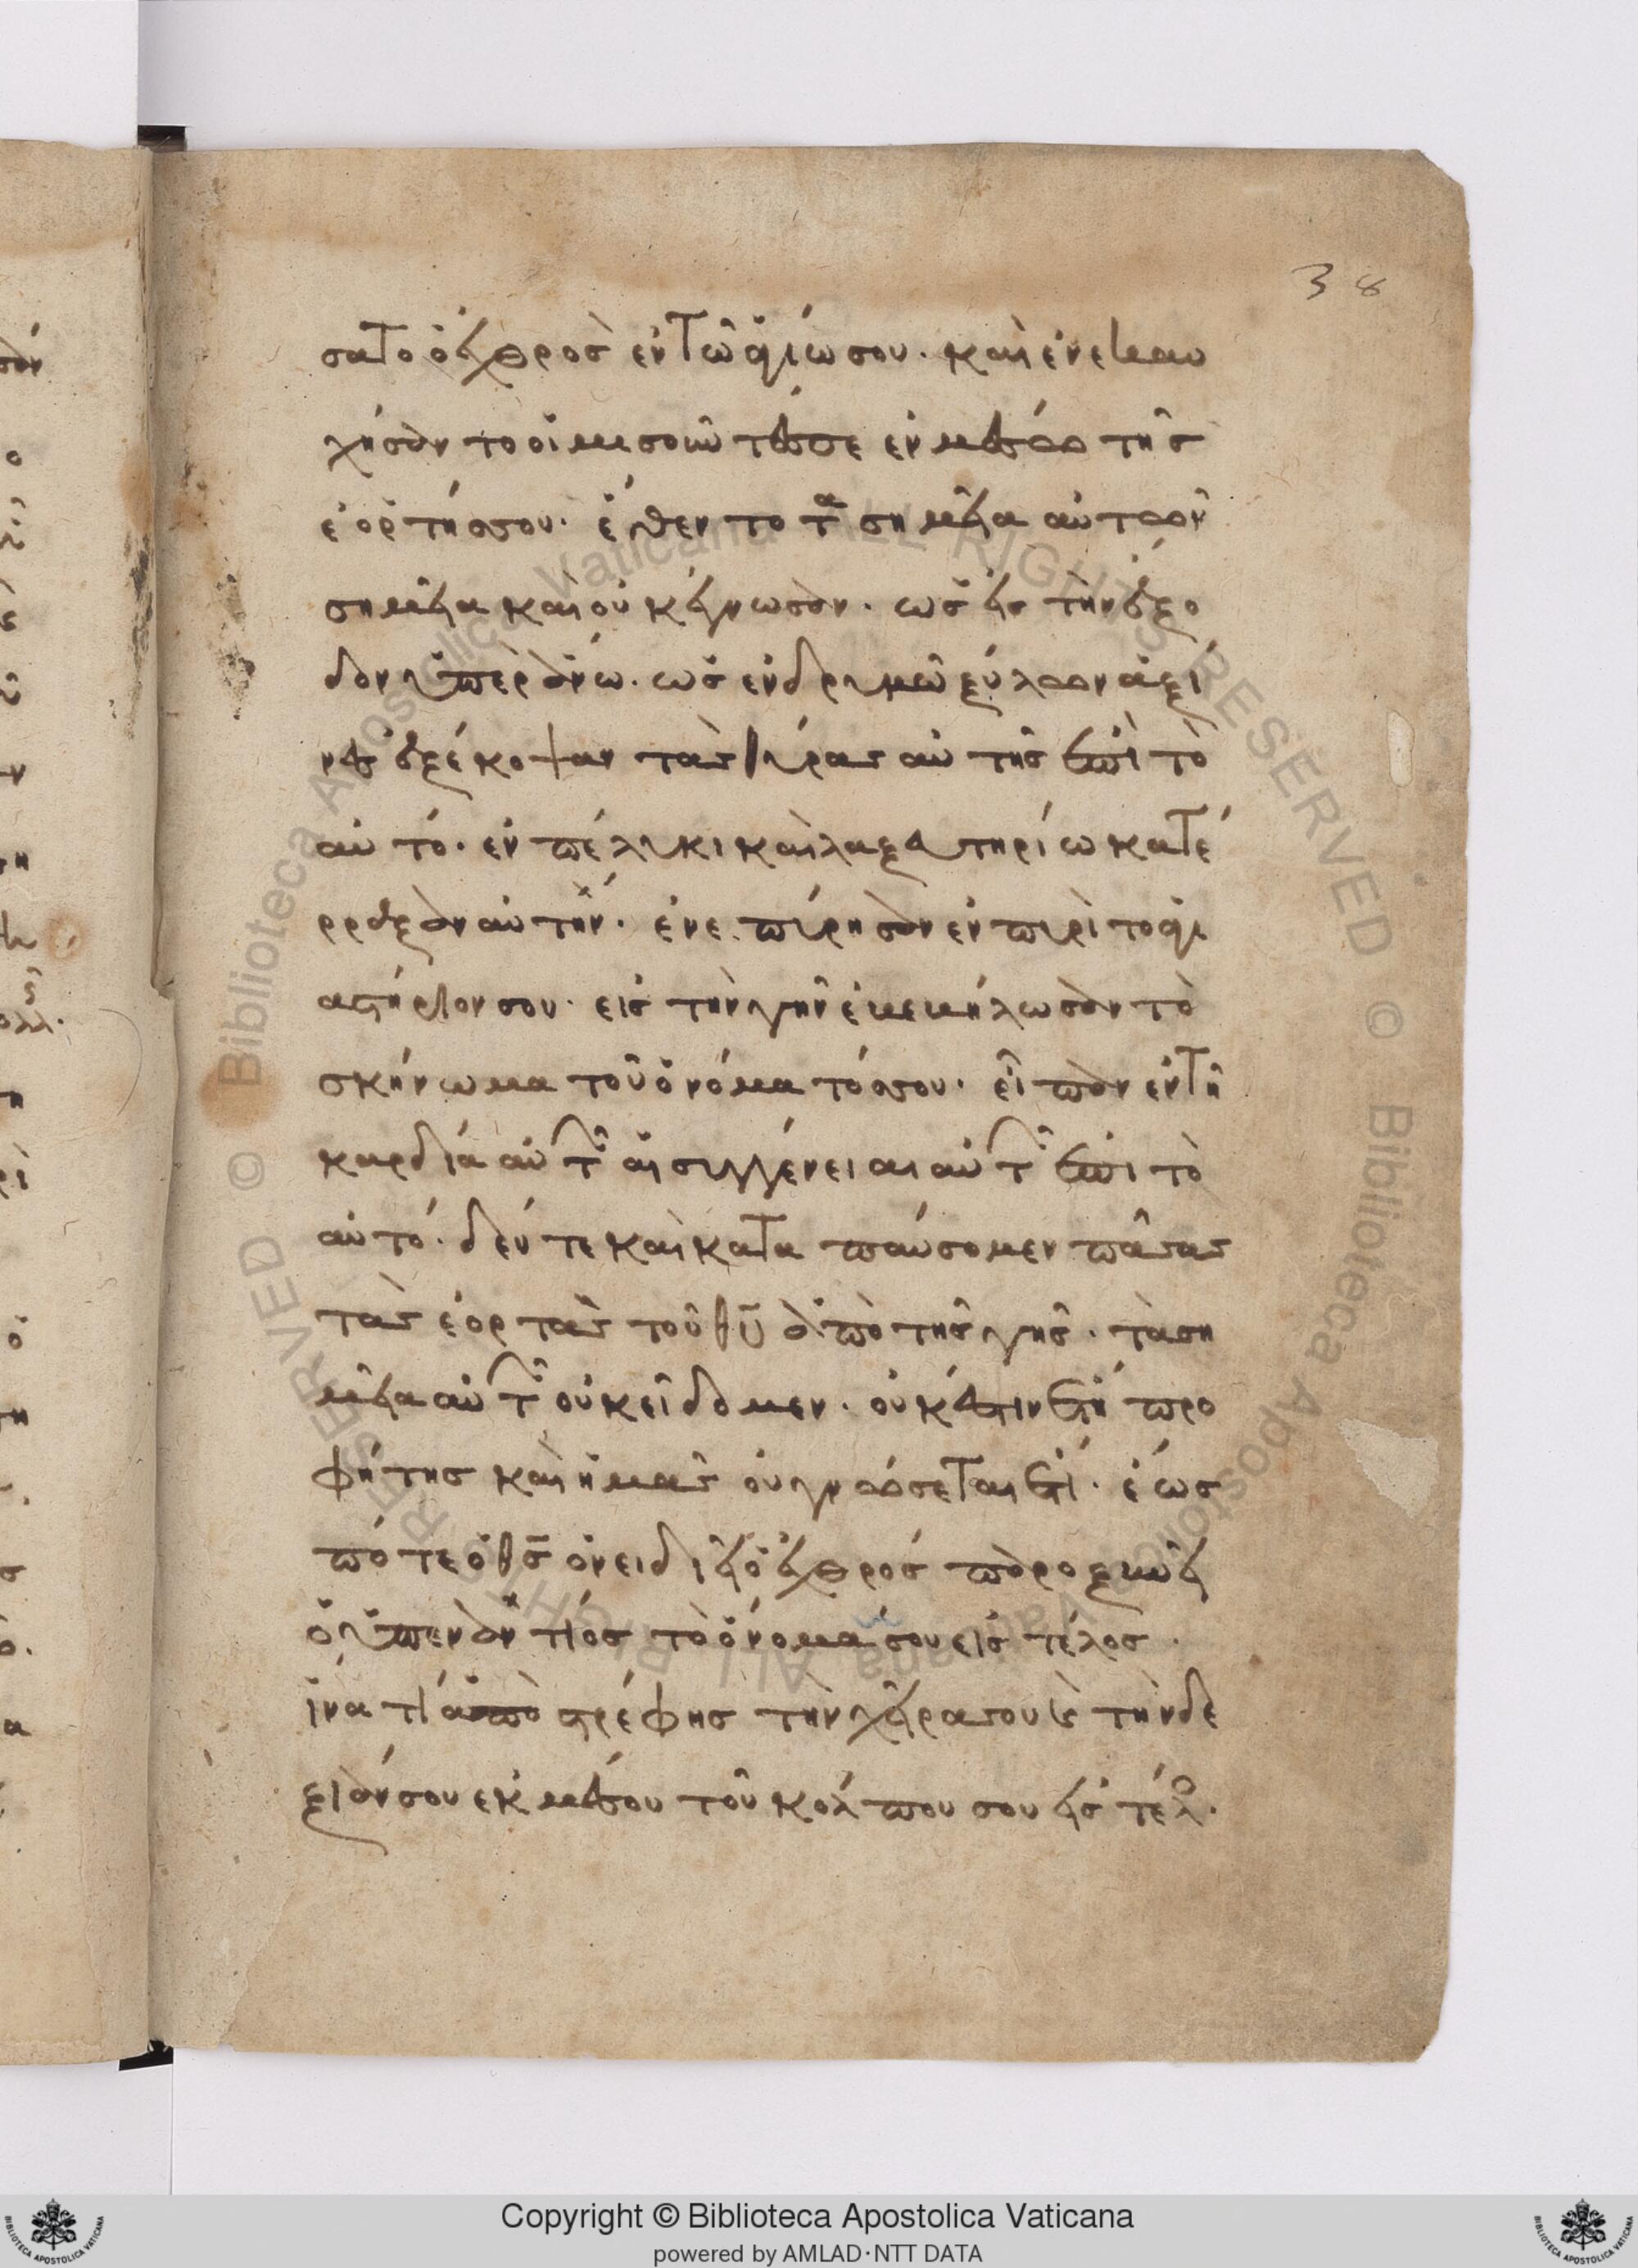 38
σατο ὁ ἐχθρὸσ ἐν τῶ ἁγίω σου. καὶ ἐνεκαυ
χήσαν το οἱ μισοῦντέσσε ἐν μέσω τῆσ
ἑορτήσσου. ἔθεντο τὰ σημεῖα αὐτῶν
σημεῖα καὶ οὐκ ἔγνωσαν. ὡσ εἰσ τὴν ἔξο
δον ὑπεράνω. ὡσ ἐν δρυμῶ ξύλων ἀξί
ναισ ἐξέκοψαν τὰσ θύρασ αὐτῆσ ἐπὶ τὸ
αὐτό. ἐν πέλυκι καὶ λαξευτηρίω κατέ
ρραξαν αὐτήν. ἐνεπύρησαν ἐν πυρὶ το ἁγι
αστήριον σου. εἰσ τὴν γῆν ἐβεβήλωσαν τὸ
σκήνωμα τοῦ ὀνόματόσσου. εἶπαν ἐν τῆ
καρδία αὐτῶν αἱ συγγένειαι αὐτῶν ἐπὶ τὸ
αὐτό. δεύτε καὶ καταπαύσομεν πάσασ
τὰσ ἑορτὰσ τοῦ θυ ἀπὸ τῆσ γῆσ. τὰ ση
μεῖα αὐτῶν οὐκ εἴδομεν. οὐκ ἔστιν ἔτι προ
φήτησ καὶ ἡμᾶσ οὐ γνώσεται ἔτι. ἕωσ
πότε ὁ θσ ὀνειδιεῖ ὁ ἐχθρόσ παροξυνεῖ
ὁ ὑπεναντίοσ τὸ ὄνομα σου εἰσ τέλοσ.
ἵνα τί ἀποστρέφησ τὴν χεῖρα σου καὶ τὴν δε
ξιάν σου ἐκ μέσου τοῦ κόλπου σου εἰσ τέλο.
© Biblioteca Apostolica Vaticana ALL RIGHTS RESERVED
Copyright © Biblioteca Apostolica Vaticana
powered by AMLAD·NTT DATA